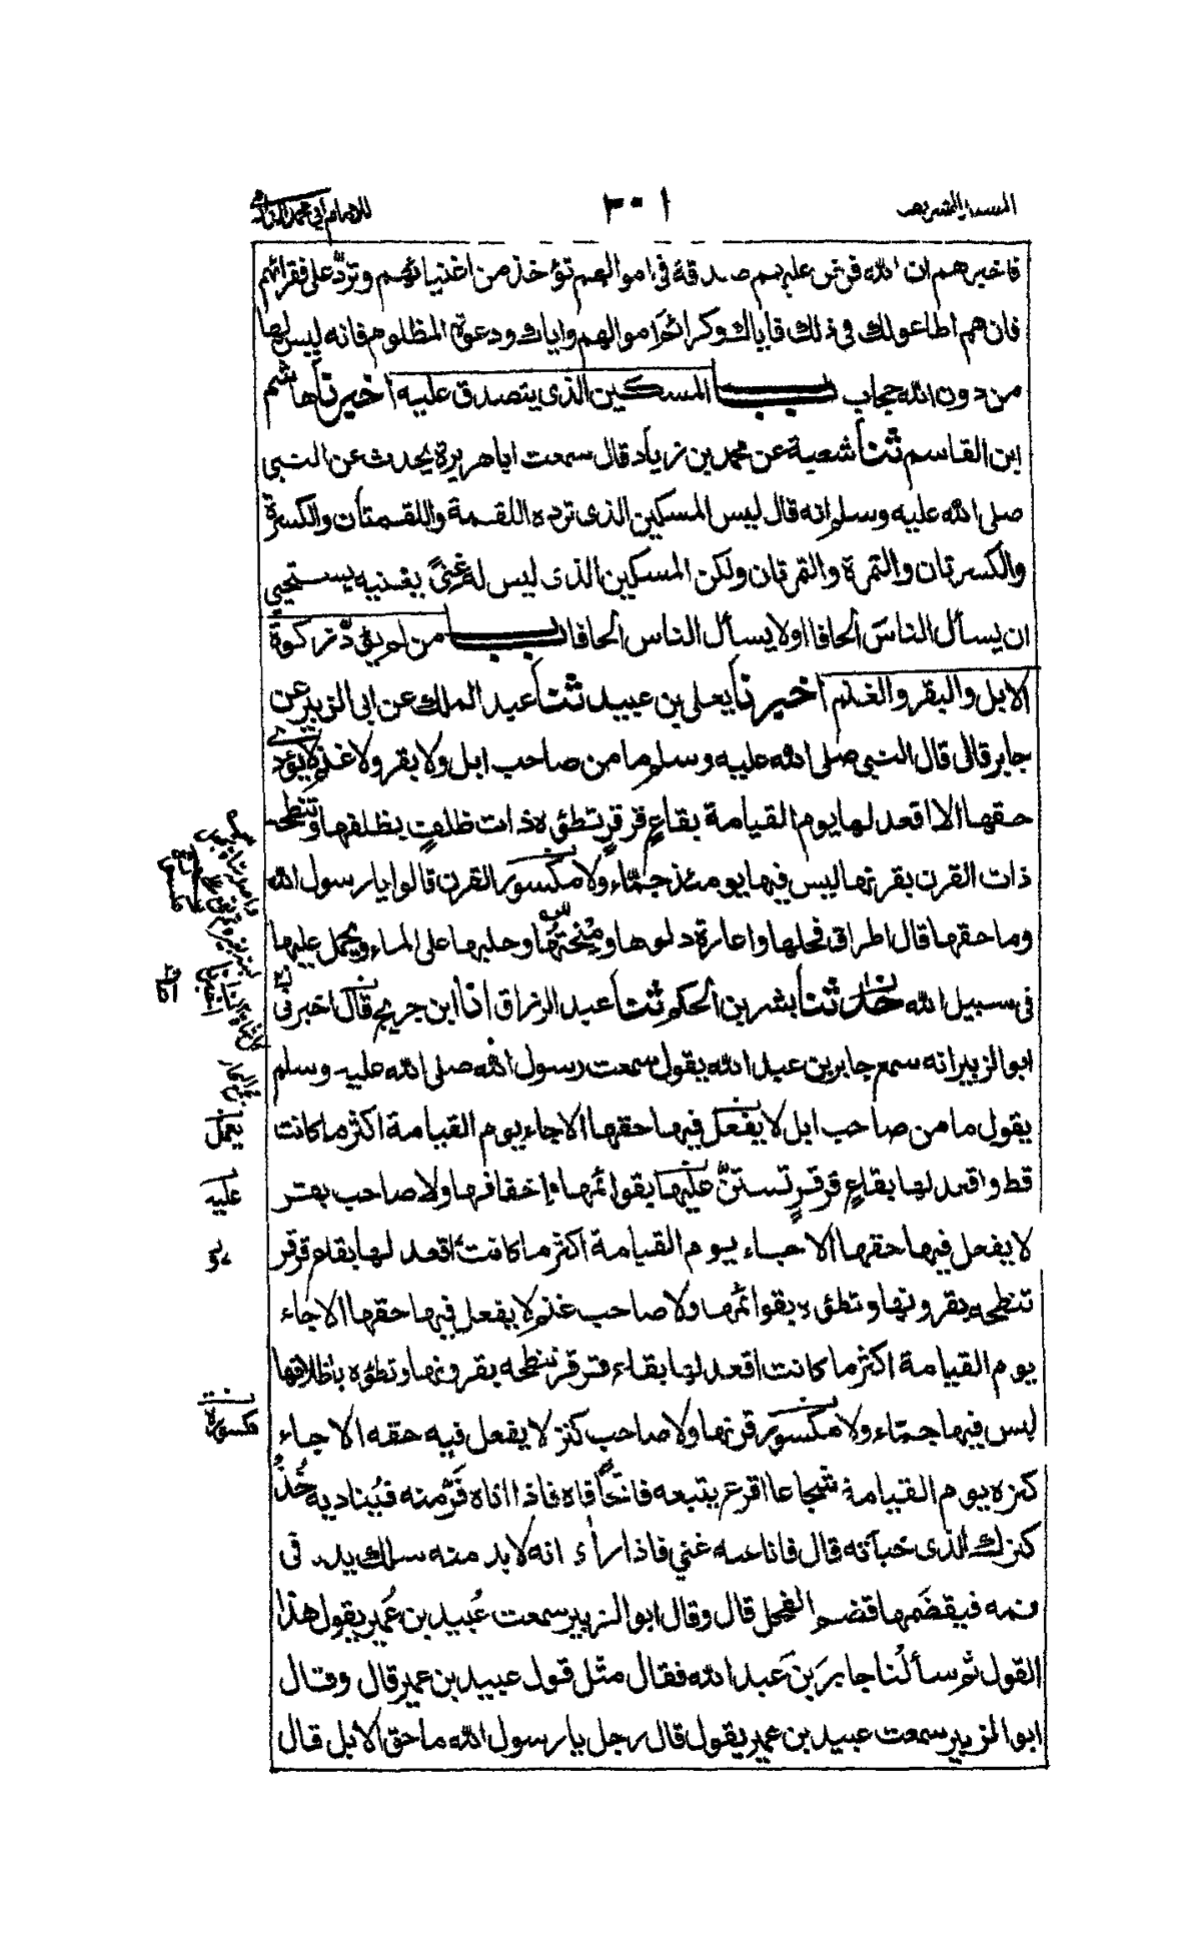 المسند الشريف
٢٠١
للامام ابي محمد الدارمي
فاخبرهم ان الله فرض عليهم صدقة في اموالهم تؤخذ من اغنيائهم وتردّ على فقرائهم
فان هم اطاعو لك في ذلك فاياك وكرائم اموالهم واياك ودعوة المظلوم فانه ليس لها
من دون الله حجاب باب المسكين الذي يتصدق عليه اخبرنا هاشم
ابن القاسم ثنا شعبة عن محمد بن زياد قال سمعت ابا هريرة يحدث عن النبي
صلى الله عليه وسلم انه قال ليس المسكين الذي ترده اللقمة واللقمتان والكسرة
والكسرتان والتمرة والتمرتان ولكن المسكين الذي ليس له غنىً يغنيه يستحيي
ان يسأل الناسَ الحافا اولا يسأل الناس الحافا باب من لم يؤدّ زكوة
الابل والبقر والغنم اخبرنا يعلى بن عبيد ثنا عبد الملك عن ابي الزبير عن
جابر قال قال النبي صلى الله عليه وسلم ما من صاحب ابل ولا بقر ولا غنم لا يؤدي
حقها الا اقعد لها يوم القيامة بقاعٍ قرقرٍ تطؤه ذات ظلفٍ بظلفها وتنطحه
ذات القرن بقرنها ليس فيها يومئذ جمّاء ولا مكسور القرن قالوا يا رسول الله
وما حقها قال اطراق فحلها واعارة دلوها ومنحتها وحلبها على الماء ويحمل عليها
في سبيل الله حدثنا بشر بن الحكم ثنا عبد الرزاق انا ابن جريج قال اخبرني
ابو الزبير انه سمع جابر بن عبد الله يقول سمعت رسول الله صلى الله عليه وسلم
يقول ما من صاحب ابل لا يفعل فيها حقها الا جاء يوم القيامة اكثر ما كانت
قط واقعد لها بقاعٍ قرقرٍ تستنّ عليها بقوائمها واخفافها ولا صاحب بقر
لا يفعل فيها حقها الا جاء يوم القيامة اكثر ما كانت اقعد لها بقاع قرقر
تنطحه بقرونها وتطؤه بقوائمها ولا صاحب غنم لا يفعل فيها حقها الا جاء
يوم القيامة اكثر ما كانت اقعد لها بقاع قرقر تنطحه بقرونها وتطؤه باظلافها
ليس فيها جمّاء ولا مكسور قرنها ولا صاحب كنز لا يفعل فيه حقه الا جاء
كنزه يوم القيامة شجاعا اقرع يتبعه فاتحًا فاه فاذا اتاه فَرَّ منه فيُناديه خُذْ
كنزك الذي خبأته قال فانا عنه غني فاذا رأى انه لا بد منه سلك يده في
فمه فيقضَمها قضم الفحل قال وقال ابو الزبير سمعت عُبيد بن عُمير يقول هذا
القول ثم سألنا جابرَ بنَ عبد الله فقال مثل قول عبيد بن عمير قال وقال
ابو الزبير سمعت عبيد بن عمير يقول قال رجل يا رسول الله ما حق الابل قال
يعمل
عليه
مكسورة